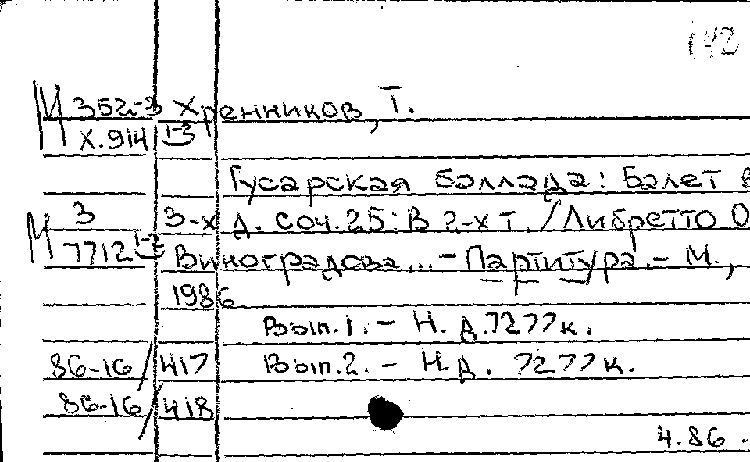 142
М 352-3 Хренников, Т.
Х.914 1-3
Гусарская баллада: Балет в
М 3 3-х д. Соч.25: В 2-х т. / Либретто О
7712 1-2 Виноградова... - Партитура. - М.,
1986
Вып.1. - Н.д.7277к.
86-16/417 Вып.2. - Н.д. 7277к.
86-16/418
4.86.